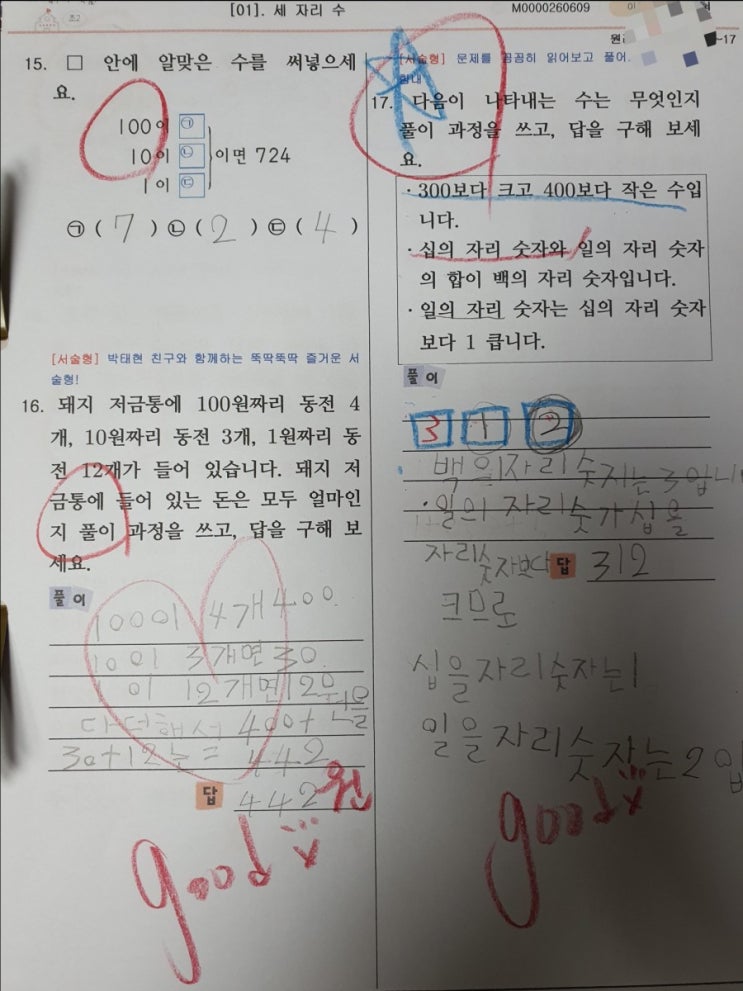 초2
[01]. 세 자리 수
M0000260609
~17
15. □ 안에 알맞은 수를 써넣으세
요.
100이 ㉠
10이 ㉡ 이면 724
1이 ㉢
㉠ ( 7 ) ㉡ ( 2 ) ㉢ ( 4 )
[서술형] 박태현 친구와 함께하는 뚝딱뚝딱 즐거운 서
술형!
16. 돼지 저금통에 100원짜리 동전 4
개, 10원짜리 동전 3개, 1원짜리 동
전 12개가 들어 있습니다. 돼지 저
금통에 들어 있는 돈은 모두 얼마인
지 풀이 과정을 쓰고, 답을 구해 보
세요.
풀 이
100이 4개 400
10이 3개면 30
1이 12개면 12
다 더해서 400+
30+12는 = 442
답 442원
good
[서술형] 문제를 꼼꼼히 읽어보고 풀어
17. 다음이 나타내는 수는 무엇인지
풀이 과정을 쓰고, 답을 구해 보세
요.
· 300보다 크고 400보다 작은 수입
니다.
· 십의 자리 숫자와 일의 자리 숫자
의 합이 백의 자리 숫자입니다.
· 일의 자리 숫자는 십의 자리 숫자
보다 1 큽니다.
풀 이
3 1 2
백의자리 숫자는 3입니
·일의 자리 숫가 십을
자리숫자보다
답 312
크므로
십을자리숫자는1
일을자리숫자는2입
good